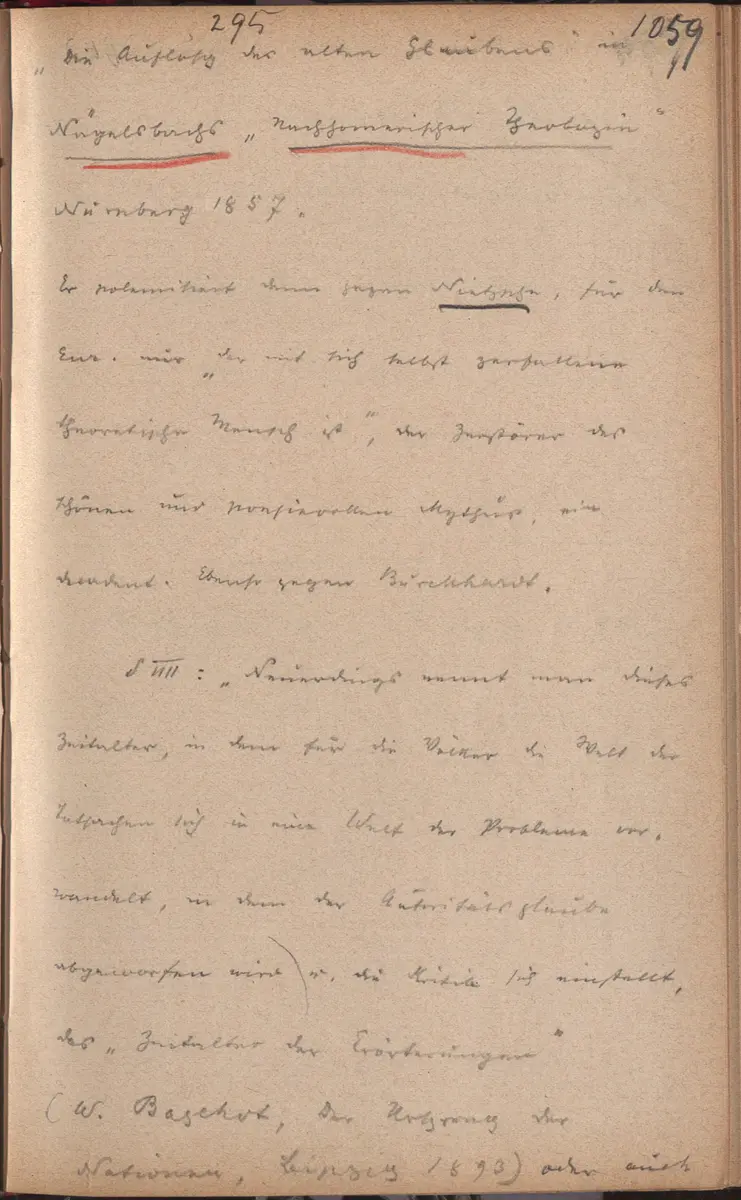 295
1059
„Die Auflösg des alten Glaubens“ in
Nägelsbachs „Nachhomerischer Theologie“
Nürnberg 1857.
Er polemisiert dann gegen Nietzsche, für den
Eur. nur „der mit sich selbst zerfallene
theoretische Mensch ist“, der Zerstörer des
schönen und poesievollen Mythus, ein
decadent. Ebenso gegen Burckhardt.
S IIII: „Neuerdings nennt man dieses
Zeitalter, in dem für die Völker die Welt der
Tatsachen sich in eine Welt der Probleme ver-
wandelt, in dem der Autoritätsglaube
abgeworfen wird u. die Kritik sich einstellt,
das „Zeitalter der Erörterungen“
(W. Bagehot, Der Ursprung der
Nationen, Leipzig 1893) oder auch